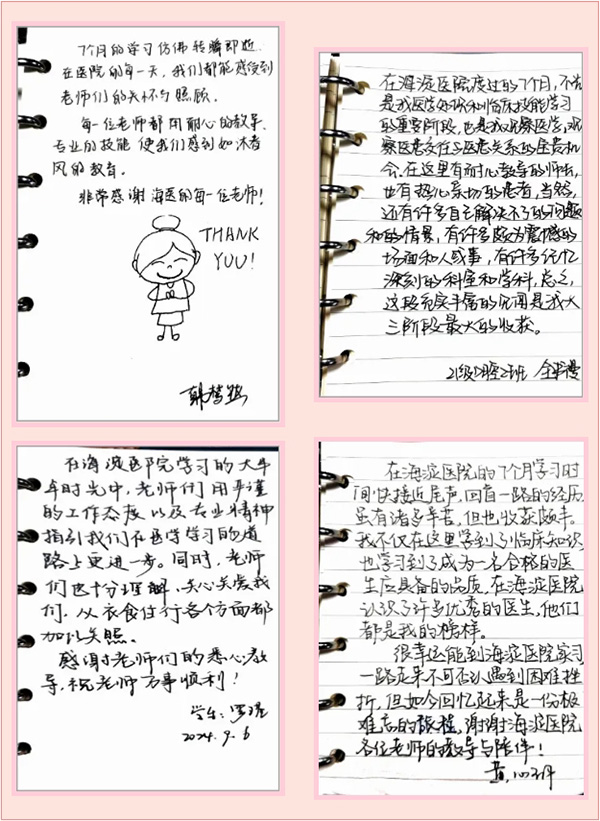 7个月的学习仿佛转瞬即逝.
在医院的每一天,我们都能感受到
老师们的关怀与照顾.
每一位老师都用耐心的教导、
专业的技能 使我们感到如沐春
风的教育.
非常感谢海医的每一位老师!
THANK
YOU!
在海淀医院度过的7个月,不光
是我医学知识和临床技能学习
的重要阶段,也是我观察医学,观
察医患交往与医患关系的宝贵机
会。在这里有耐心教导的师长,
也有热心亲切的患者,当然,
还有许多自己解决不了的问题
和的情景,有许多颇为震撼的
场面和人或事,有许多记忆
深刻的科室和学科,总之,
这段充实丰富的见闻是我大
三阶段最大的收获。
21级口腔2班
在海淀医院学习的大半
年时光中,老师们用严谨
的工作态度以及专业精神
指引我们在医学学习的道
路上更进一步。同时,老师
们也十分理解、关心关爱我
们,从衣食住行各个方面都
加以关照。
感谢老师们的悉心教
导,祝老师万事顺利!
学生:
2024.9.6
在海淀医院的7个月学习时
间快接近尾声,回首一路的经历
虽有诸多辛苦,但也收获颇丰。
我不仅在这里学到了临床知识
也学习到了成为一名合格的医
生应具备的品质,在海淀医院
认识了许多优秀的医生,他们
都是我的榜样。
很幸运能到海淀医院实习
一路走来不可否认遇到困难挫
折,但如今回忆起来是一份极
难忘的旅程,谢谢海淀医院
各位老师的教导与陪伴!